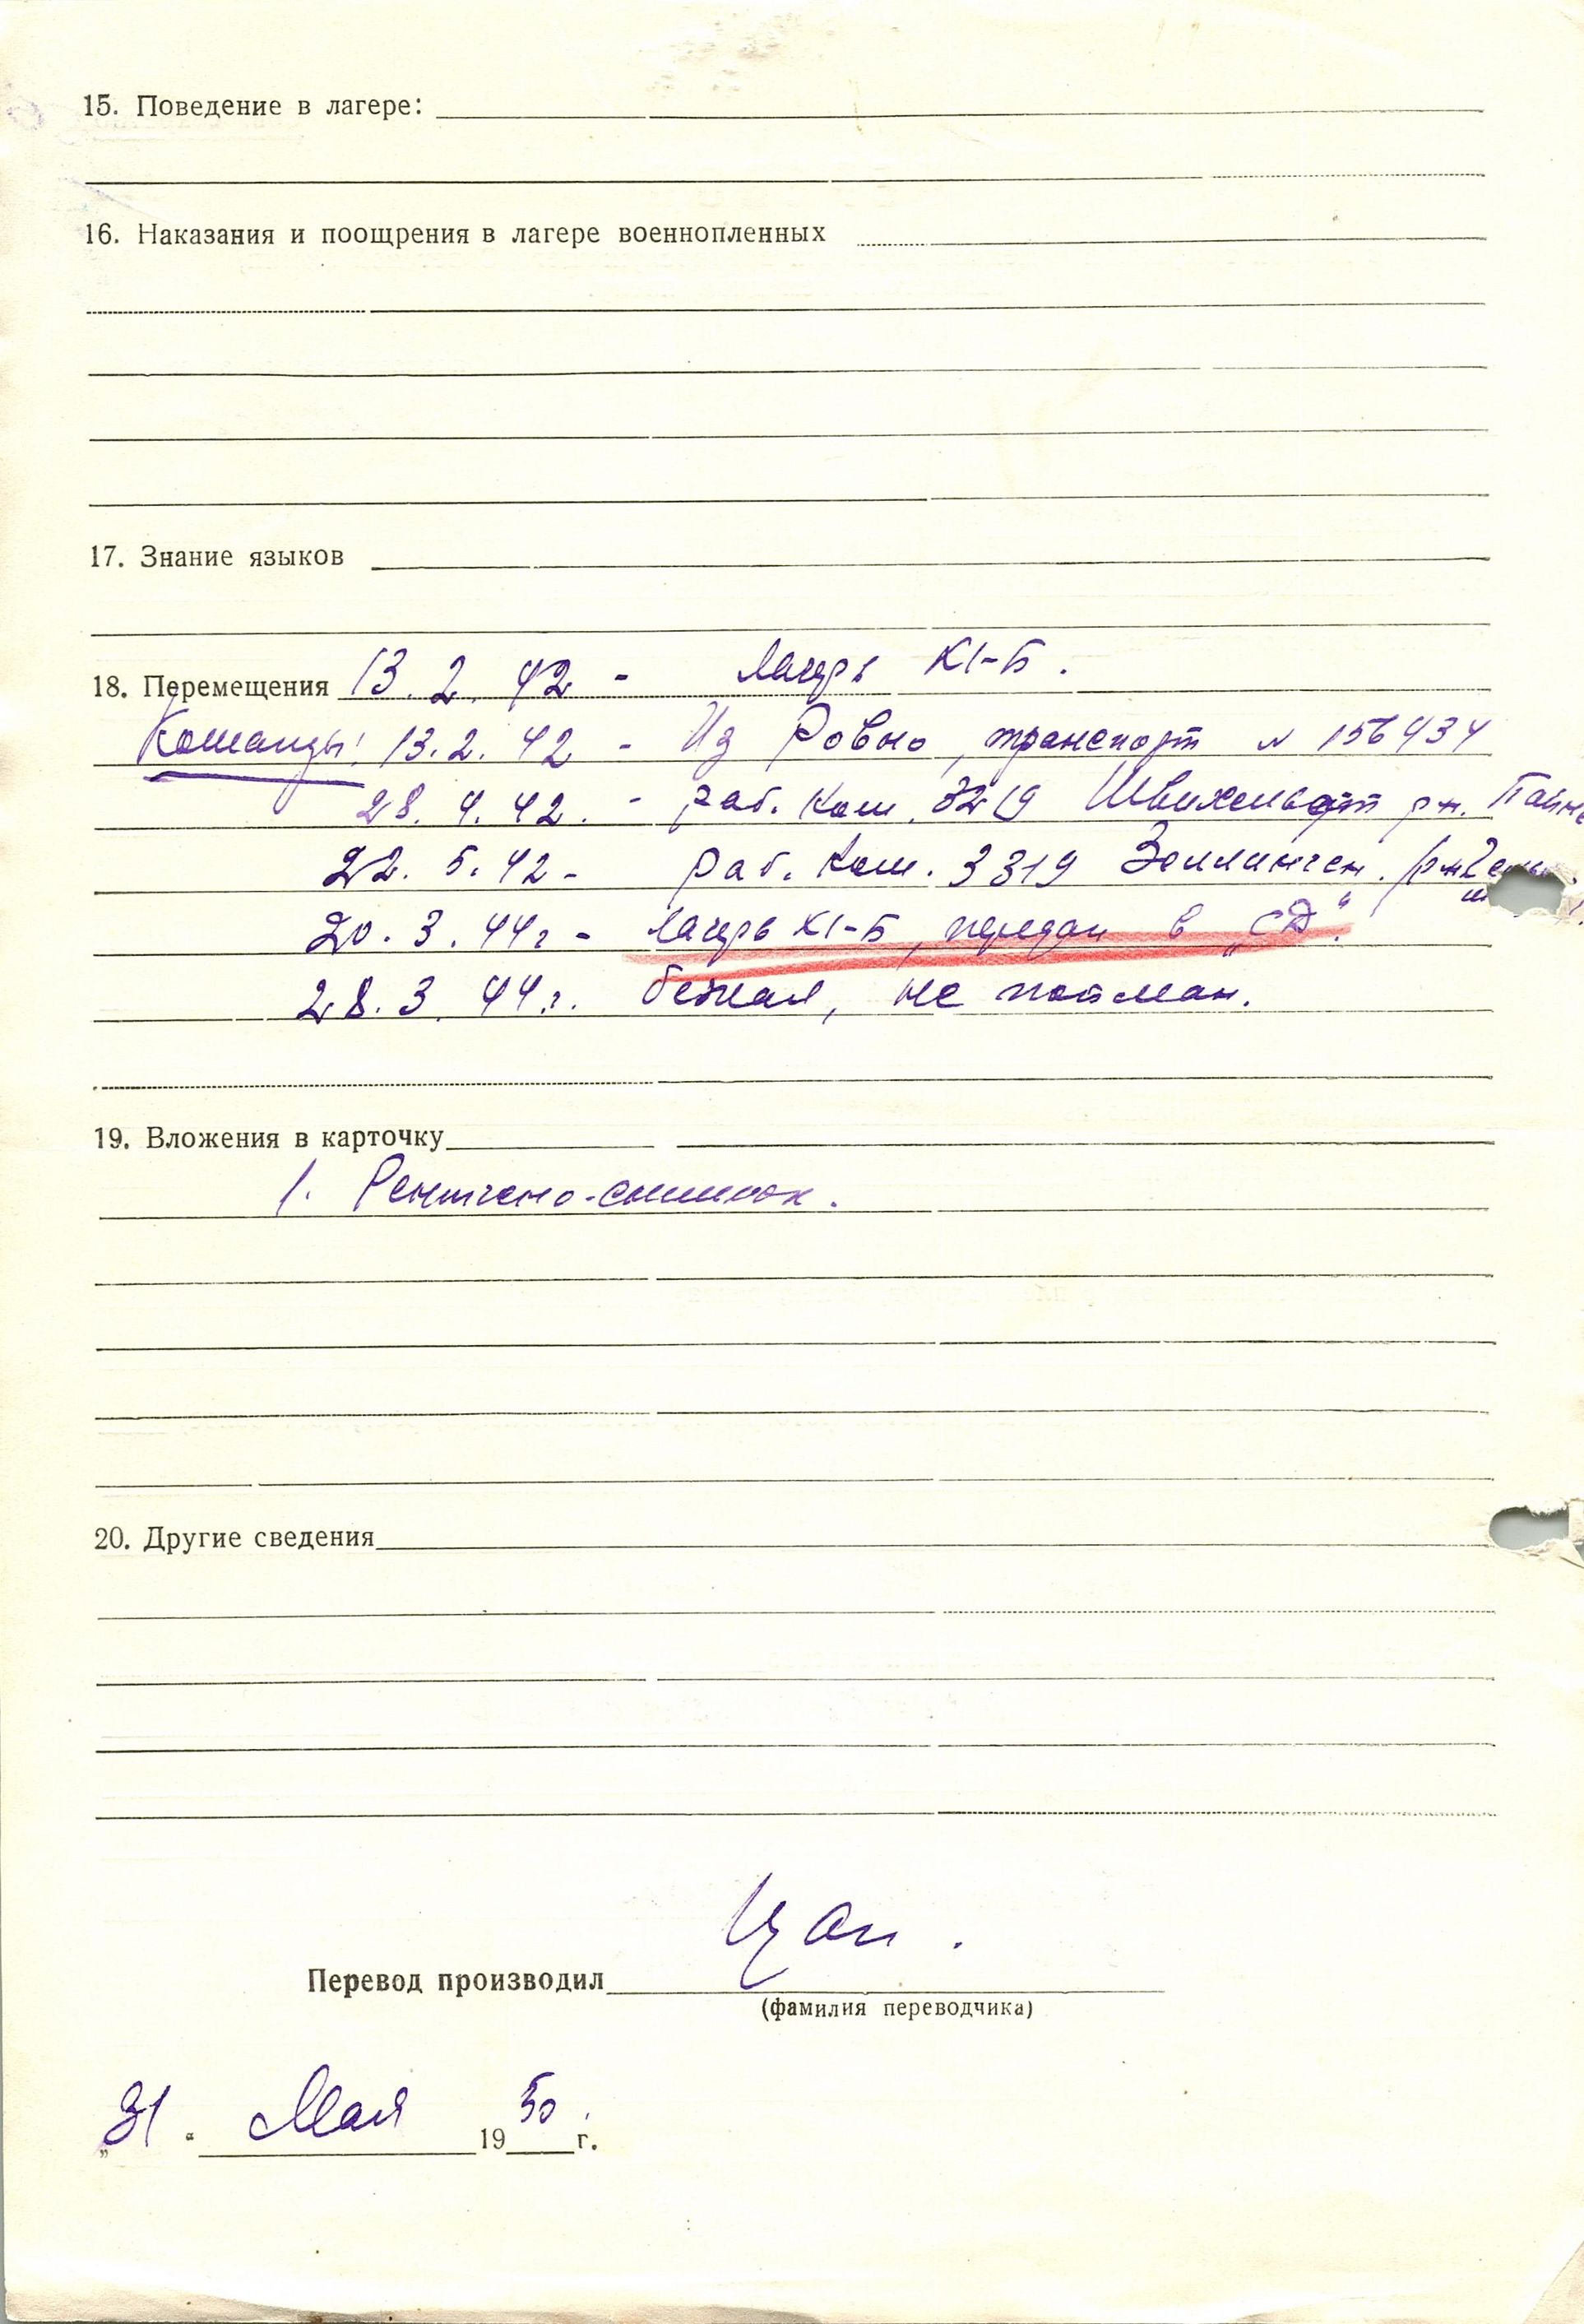 15. Поведение в лагере:
16. Наказания и поощрения в лагере военнопленных
17. Знание языков
18. Перемещения 13. 2. 42 - лагерь XI-Б.
Команды: 13. 2. 42 - Из Ровно, транспорт № 156434
28. 4. 42. - раб. ком. 3219 рн. Пайне
22. 5. 42 - раб. ком. 3319 Золлинген.
20. 3. 44 г - лагерь XI-Б, передан в „СД“.
28. 3. 44 г. бежал, не пойман.
19. Вложения в карточку
1. Рентгено-снимок.
20. Другие сведения
Перевод производил Цап.
(фамилия переводчика)
„31“ Мая 1950 г.